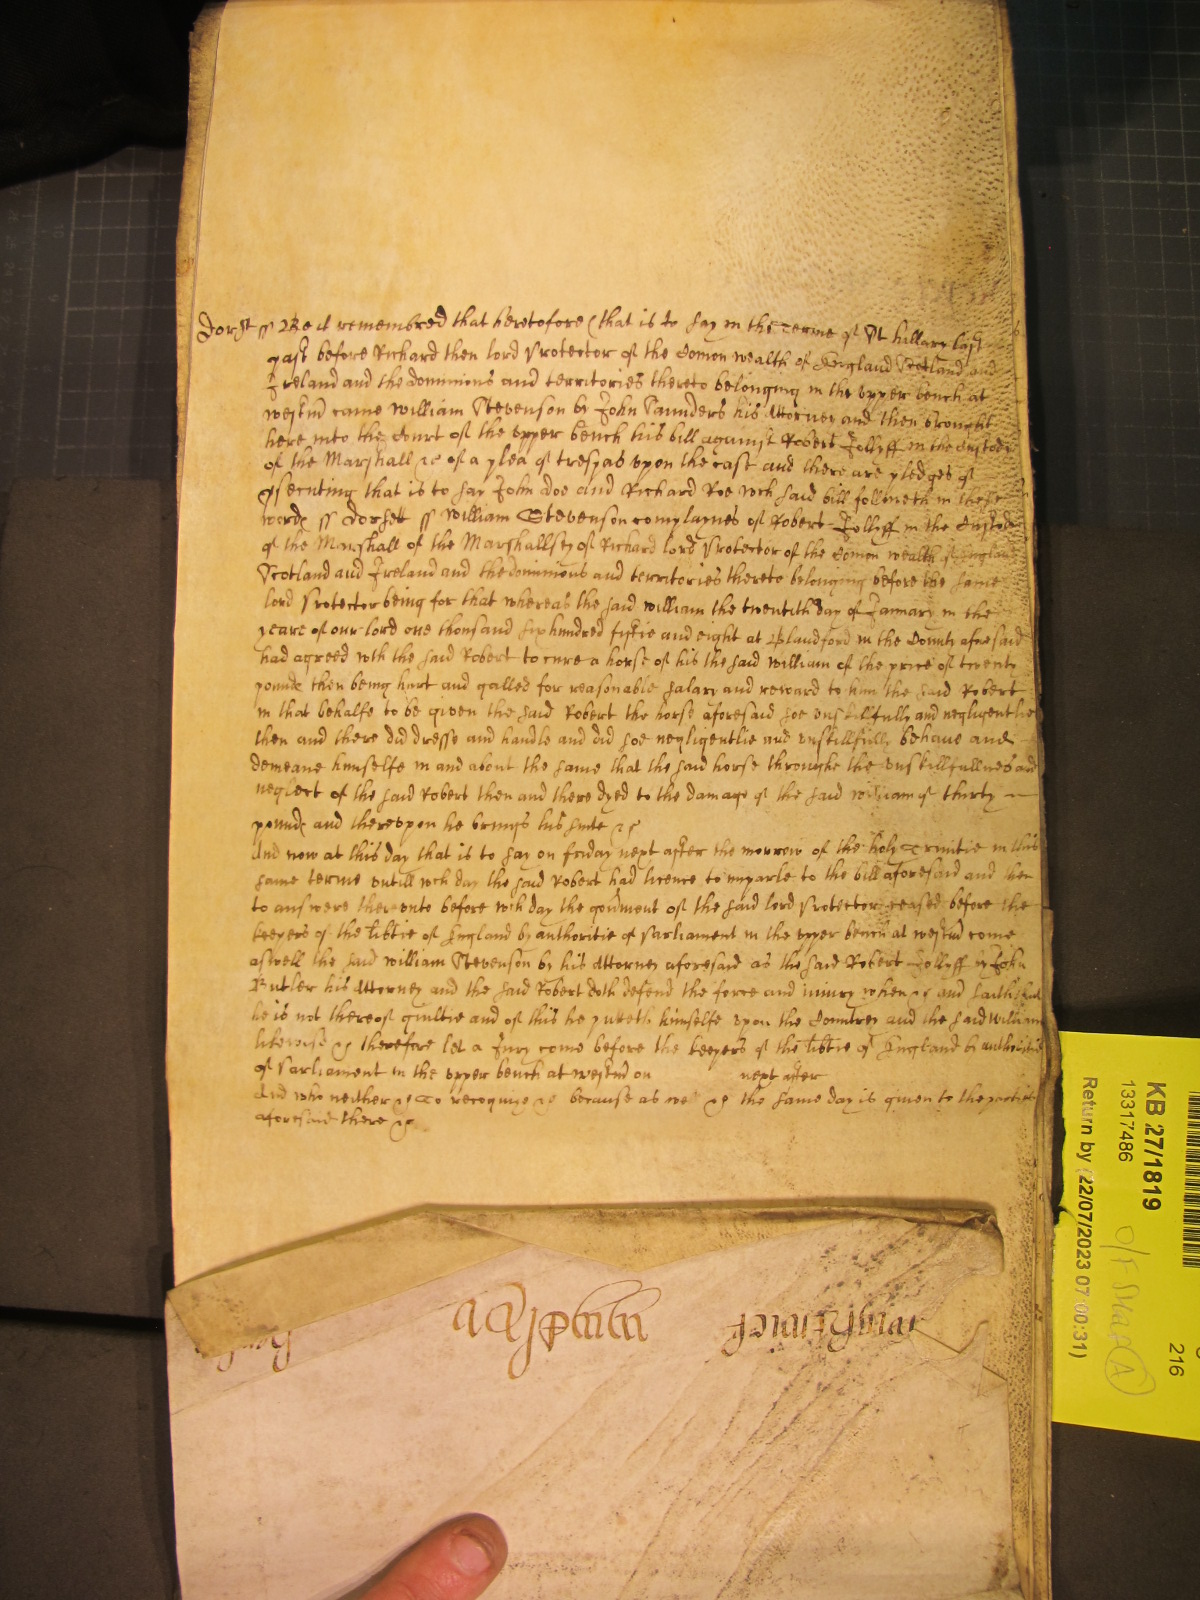 Dorst ss Be it remembred that heretofore (that is to say in the Terme of St hillary last
past before Richard then lord Protector of the Comon wealth of England Scotland and
Ireland and the dominions and territories thereto belonging in the upper bench at
westmr came william Stevenson by John Saunders his Attorney and then brought
here into the Court of the upper bench his bill against Robert Jolliff in the Custody
of the Marshall &c of a plea of trespas upon the case and there are pledges of
psecuting that is to say John doe and Richard Roe wch said bill followeth in these
words ss Dorsett ss william Stevenson complaynes of Robert Jolliff in the Custody
of the Marshall of the Marshallsey of Richard lord Protector of the Comon wealth of England
Scotland and Ireland and the dominions and territories thereto belonging before the same
lord Protector being for that whereas the said william the twentith day of January in the
yeare of our lord one thousand six hundred fiftie and eight at Blandford in the County aforesaid
had agreed wth the said Robert to cure a horse of his the said william of the price of twenty
pounds then being hurt and galled for reasonable salary and reward to him the said Robert
in that behalfe to be given the said Robert the horse aforesaid soe unskillfully and negligentlie
then and there did dresse and handle and did soe negligentlie and unskillfully behave and
demeane himselfe in and about the same that the said horse throughe the unskillfullnes and
neglect of the said Robert then and there dyed to the damage of the said william of thirty
pounds and thereupon he brings his suite &c
And now at this day that is to say on friday next after the morrow of the holy Trinitie in this
same terme untill wch day the said Robert had licence to imparle to the bill aforesaid and then
to answere thereunto before wch day the goverment of the said lord Protector ceased before the
keepers of the libtie of England by authoritie of Parliament in the upper bench at westmr come
aswell the said william Stevenson by his Attorney aforesaid as the said Robert Jolliff by John
Butler his Attorney and the said Robert doth defend the force and iniury when &c and saith that
he is not thereof guiltie and of this he putteth himselfe upon the Countrey and the said William
likewise &c therefore let a Jury come before the keepers of the libtie of England by authoritie
of Parliament in the upper bench at westmr on next after
And who neither &c To recognize &c because as well &c the same day is given to the parties
aforesaid there &c
KB 27/1819
13317486
Return by (22/07/2023 07:00:31)
216
A